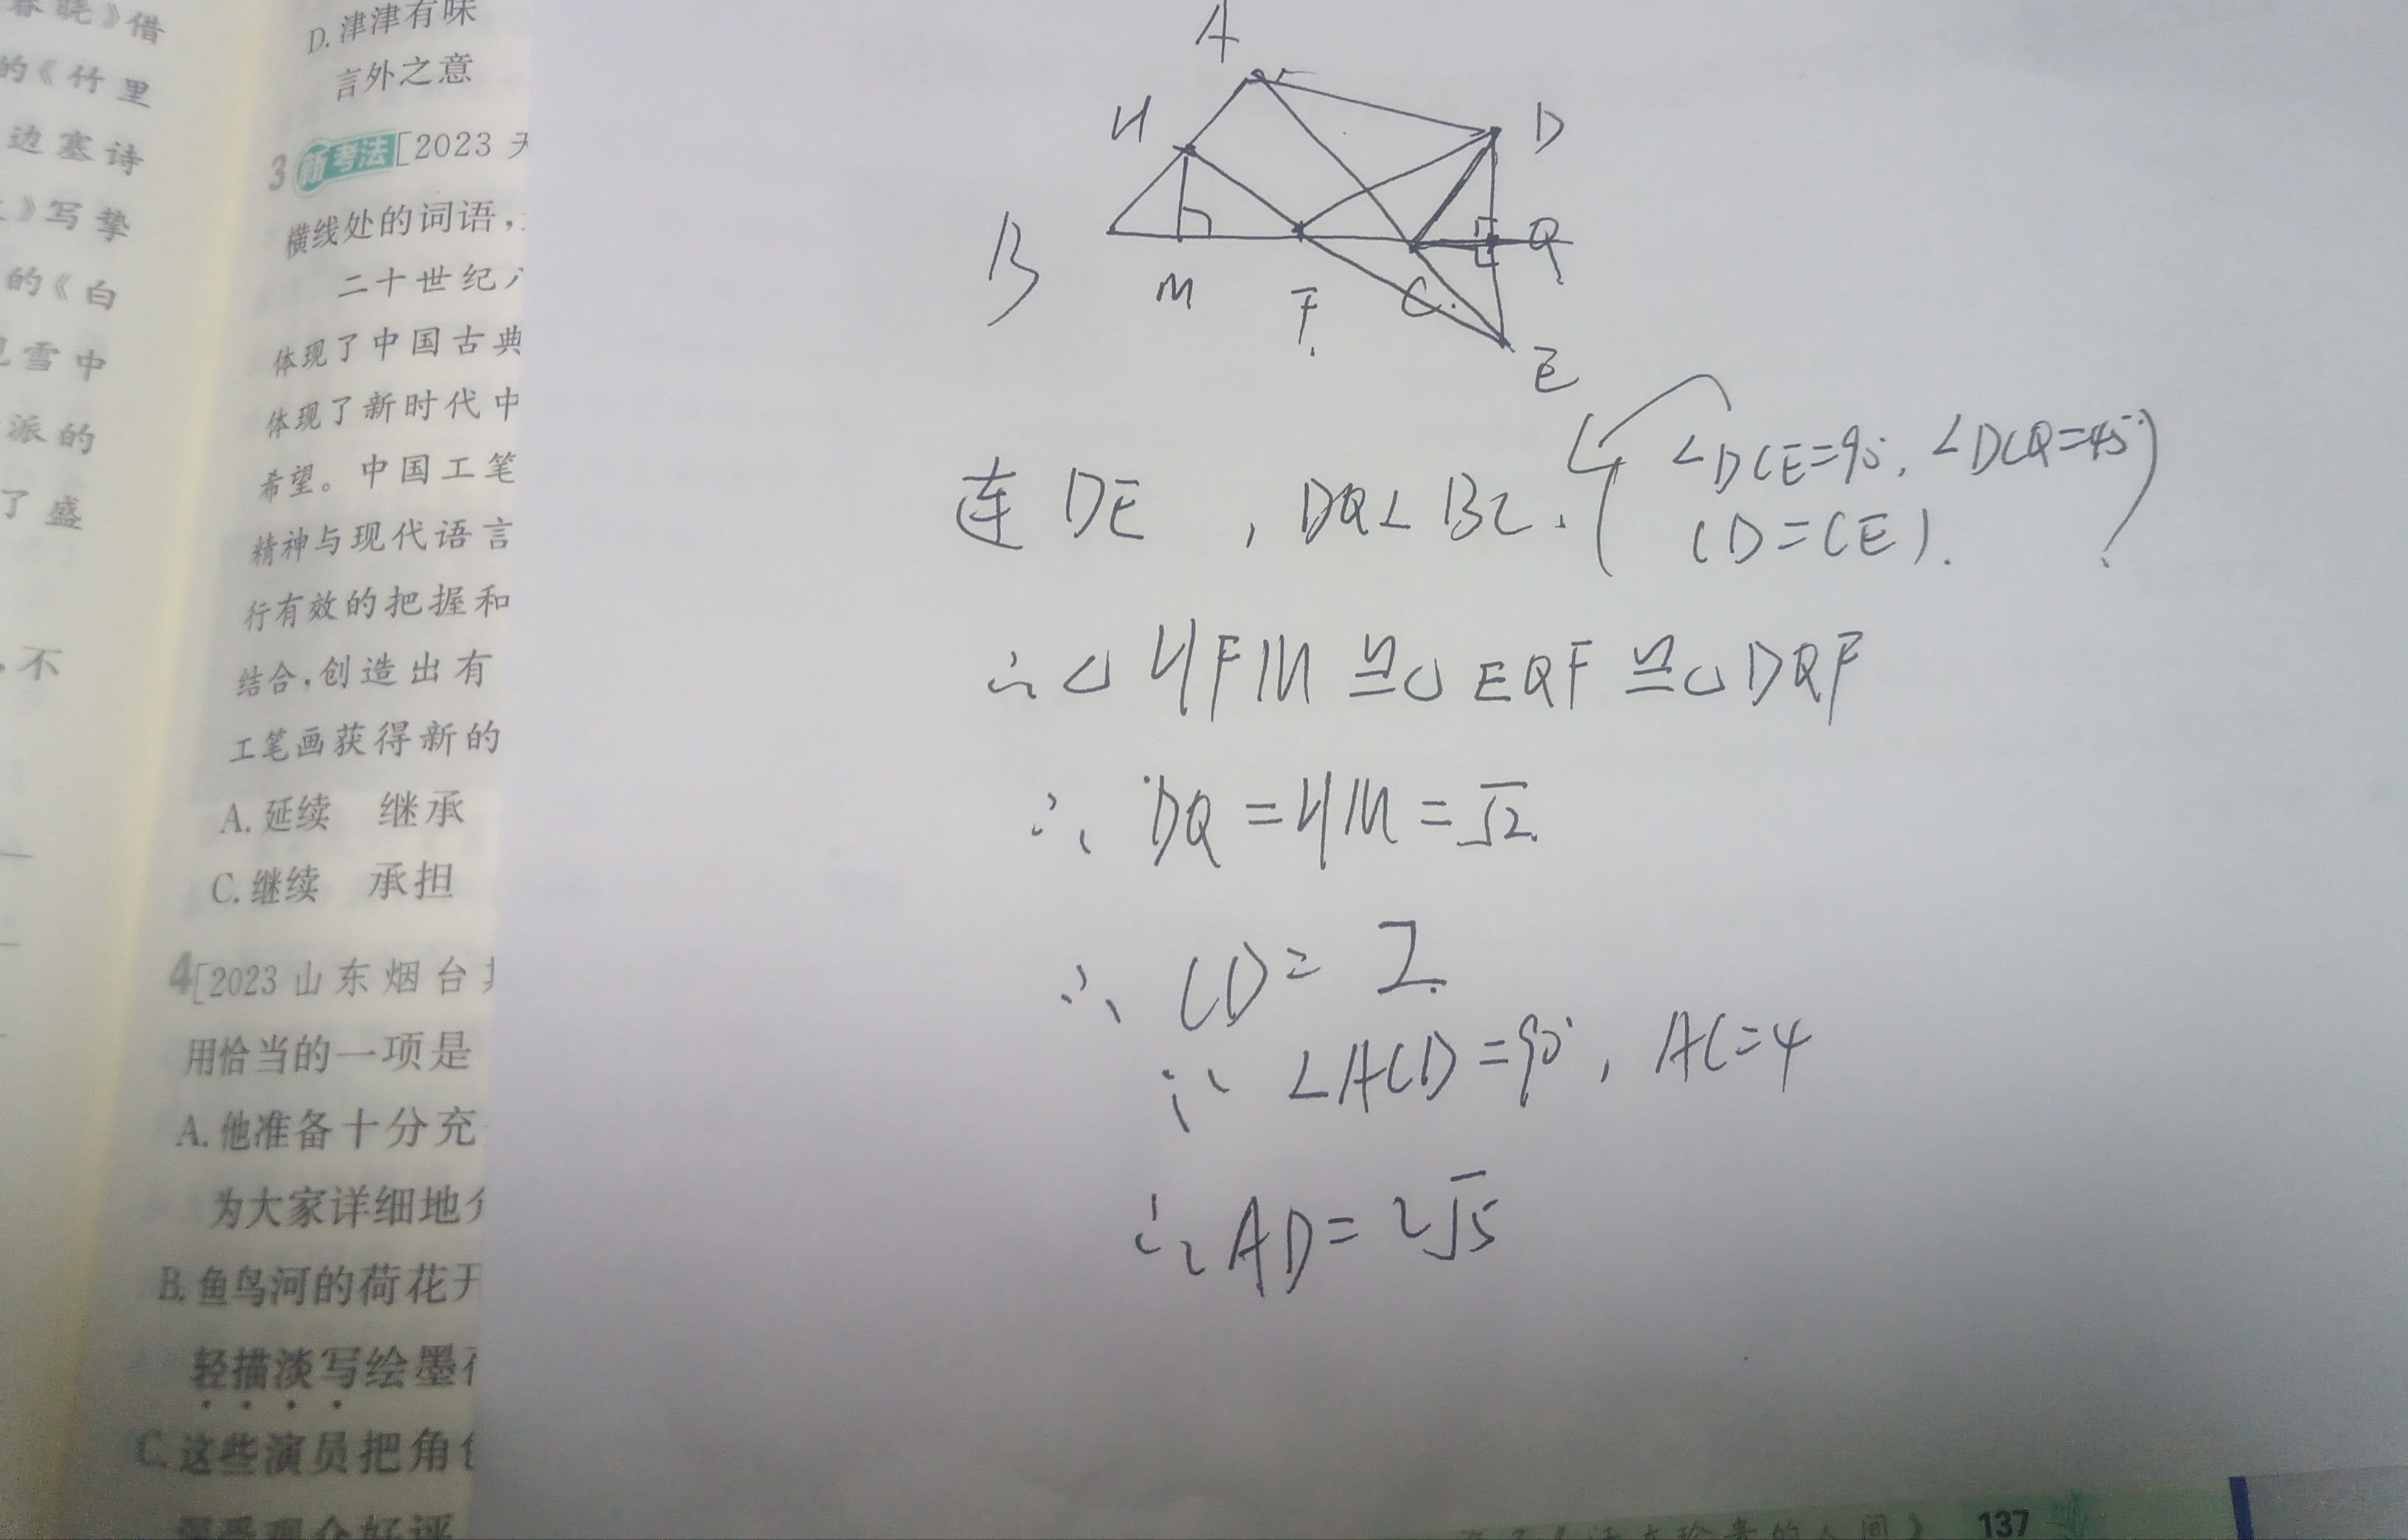 春晓》借
的《竹里
边塞诗
》写挚
的《白
见雪中
派的
了盛
不
D.津津有味
言外之意
3 新考法 [2023 天
横线处的词语,
二十世纪八
体现了中国古典
体现了新时代中
希望。中国工笔
精神与现代语言
行有效的把握和
结合,创造出有
工笔画获得新的
A.延续 继承
C.继续 承担
4 [2023 山东烟台
用恰当的一项是
A.他准备十分充
为大家详细地介
B.鱼鸟河的荷花开
轻描淡写绘墨
C.这些演员把角色
A
H
D
B
M
F
C
Q
E
连 DE , DQ⊥BC. ( ∠DCE=90°, ∠DCQ=45°
CD=CE).
∴△HFM≌△EQF≌△DQF
∴ DQ=HM=√2.
∴ CD=2.
∵ ∠ACD=90°, AC=4
∴AD=2√5
137